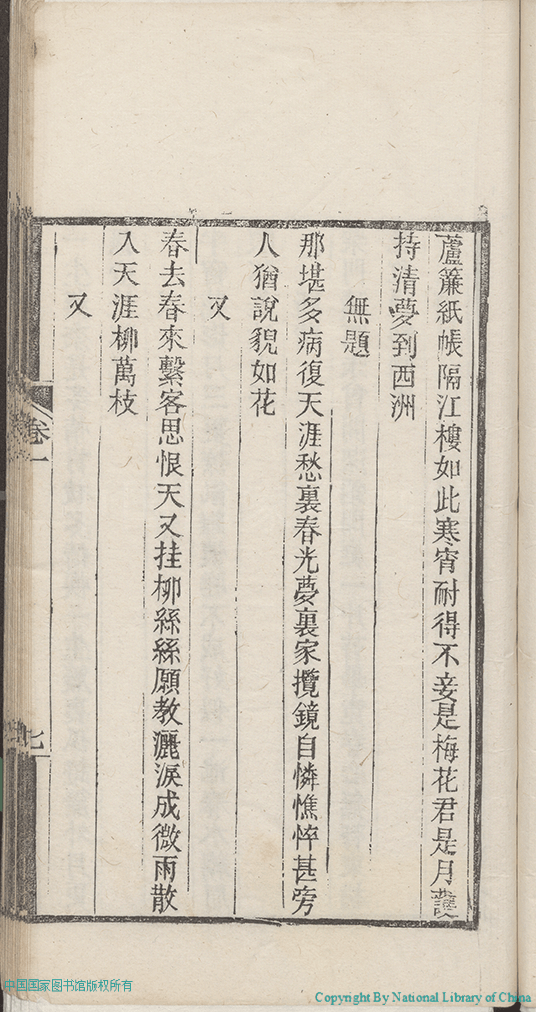 蘆簾紙帳隔江樓如此寒宵耐得不妾是梅花君是月護
持清夢到西洲
無題
那堪多病復天涯愁裏春光夢裏家攬鏡自憐憔悴甚旁
人猶說貌如花
又
春去春來繫客思恨天又挂柳絲絲願教灑淚成微雨散
入天涯柳萬枝
又
卷一
七
中国国家图书馆版权所有
Copyright By National Library of China